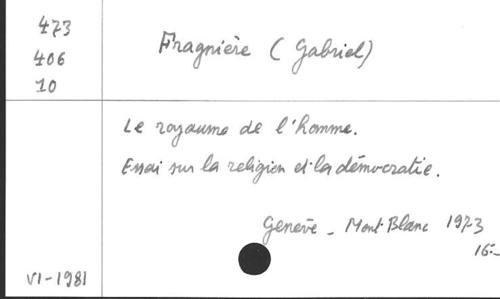 473
406
10
Fragnière (Gabriel)
Le royaume de l'homme.
Essai sur la religion et la démocratie.
Genève - Mont Blanc 1973
16.-
VI-1981